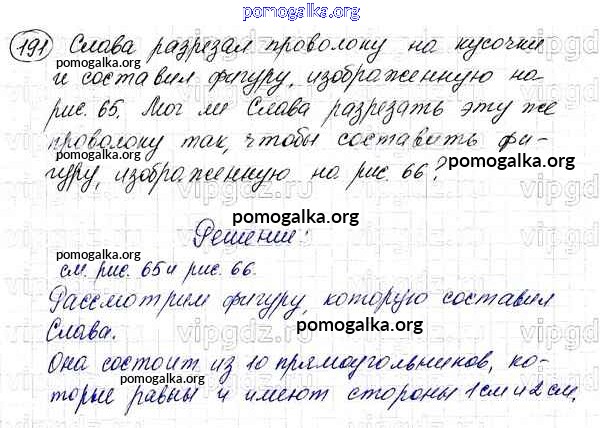 pomogalka.org
191 Слава разрезал проволоку на кусочки
и составил фигуру, изображенную на
pomogalka.org
рис. 65. Мог ли Слава разрезать эту же
проволоку так, чтобы составить фи-
pomogalka.org
pomogalka.org
гуру, изображенную на рис. 66?
pomogalka.org
Решение:
см. рис. 65 и рис. 66.
pomogalka.org
Рассмотрим фигуру, которую составил
Слава.
pomogalka.org
Она состоит из 10 прямоугольников, ко-
pomogalka.org
торые равны и имеют стороны 1 см и 2 см.